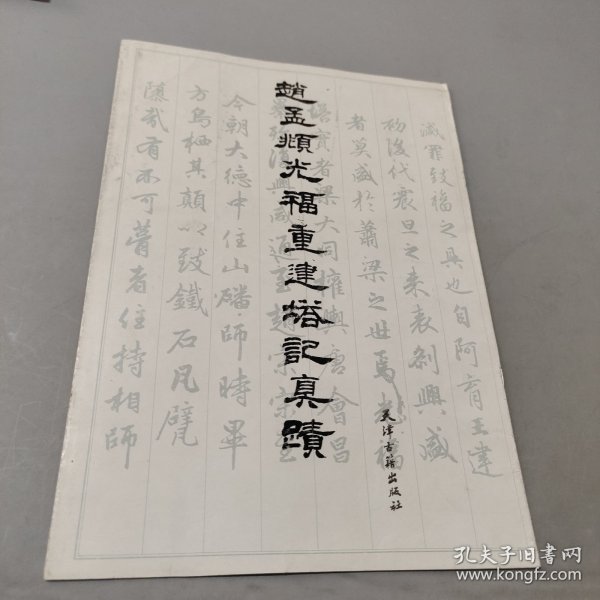 趙孟頫光福重建塔記真蹟
天津古籍出版社
滅罪致福之具也自阿育王建
初後代震旦之来表刹興盛
者莫盛於蕭梁之世焉
福
塔寶者梁大同摧輿唐會昌
今朝大德中住山磻師時畢
方鳥栖其顛以致鐵石凡甓
隳哉有不可薺者住持相師
孔夫子旧书网
www.kongfz.com